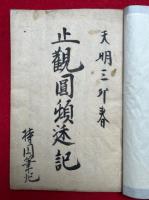 天明三卯春
止觀圓頓述記